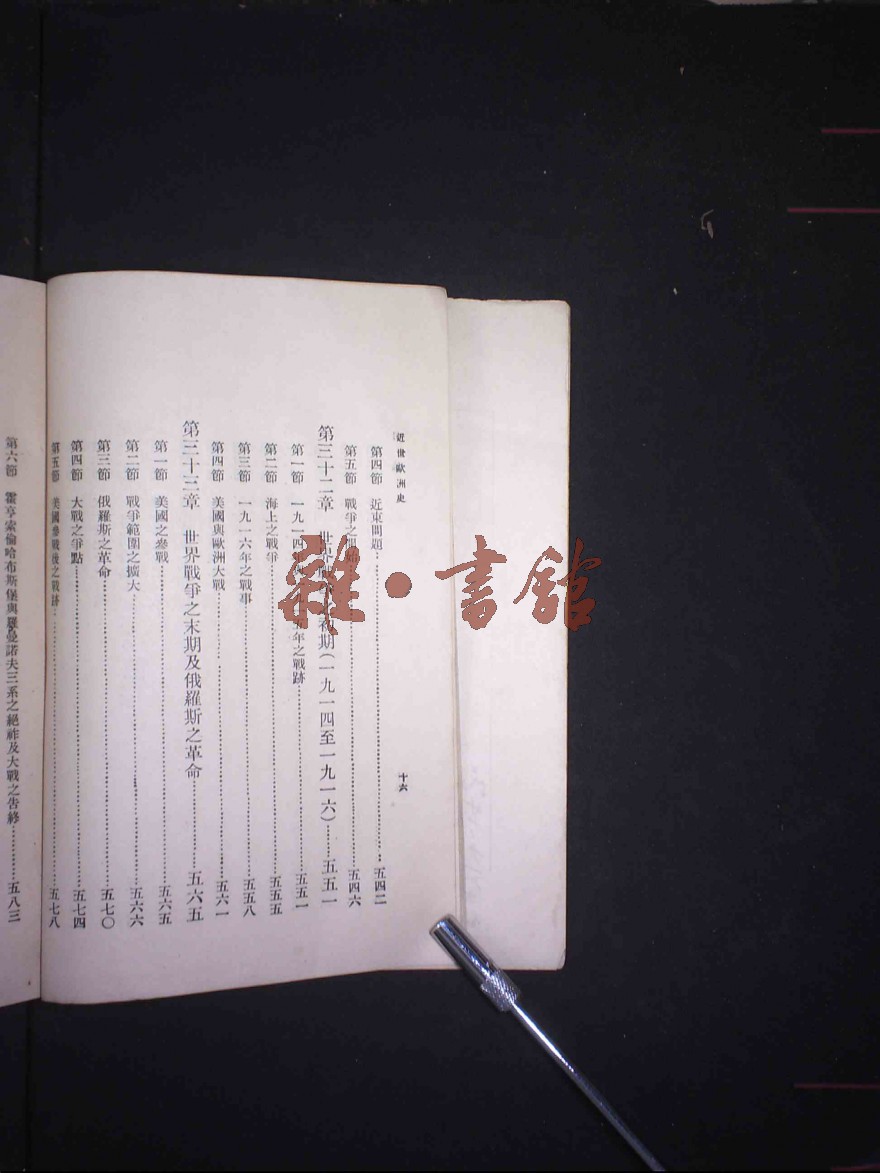 近世歐洲史
十六
第四節 近東問題 五四二
第五節 戰爭之 五四六
第三十二章 世界 初期(一九一四至一九一六) 五五一
第一節 一九一四 五年之戰跡 五五一
第二節 海上之戰爭 五五五
第三節 一九一六年之戰事 五五八
第四節 美國與歐洲大戰 五六一
第三十三章 世界戰爭之末期及俄羅斯之革命 五六五
第一節 美國之參戰 五六五
第二節 戰爭範圍之擴大 五六六
第三節 俄羅斯之革命 五七〇
第四節 大戰之爭點 五七四
第五節 美國參戰後之戰跡 五七八
第六節 霍亨索倫哈布斯堡與羅曼諾夫三系之絕祚及大戰之告終 五八三
雜·書館